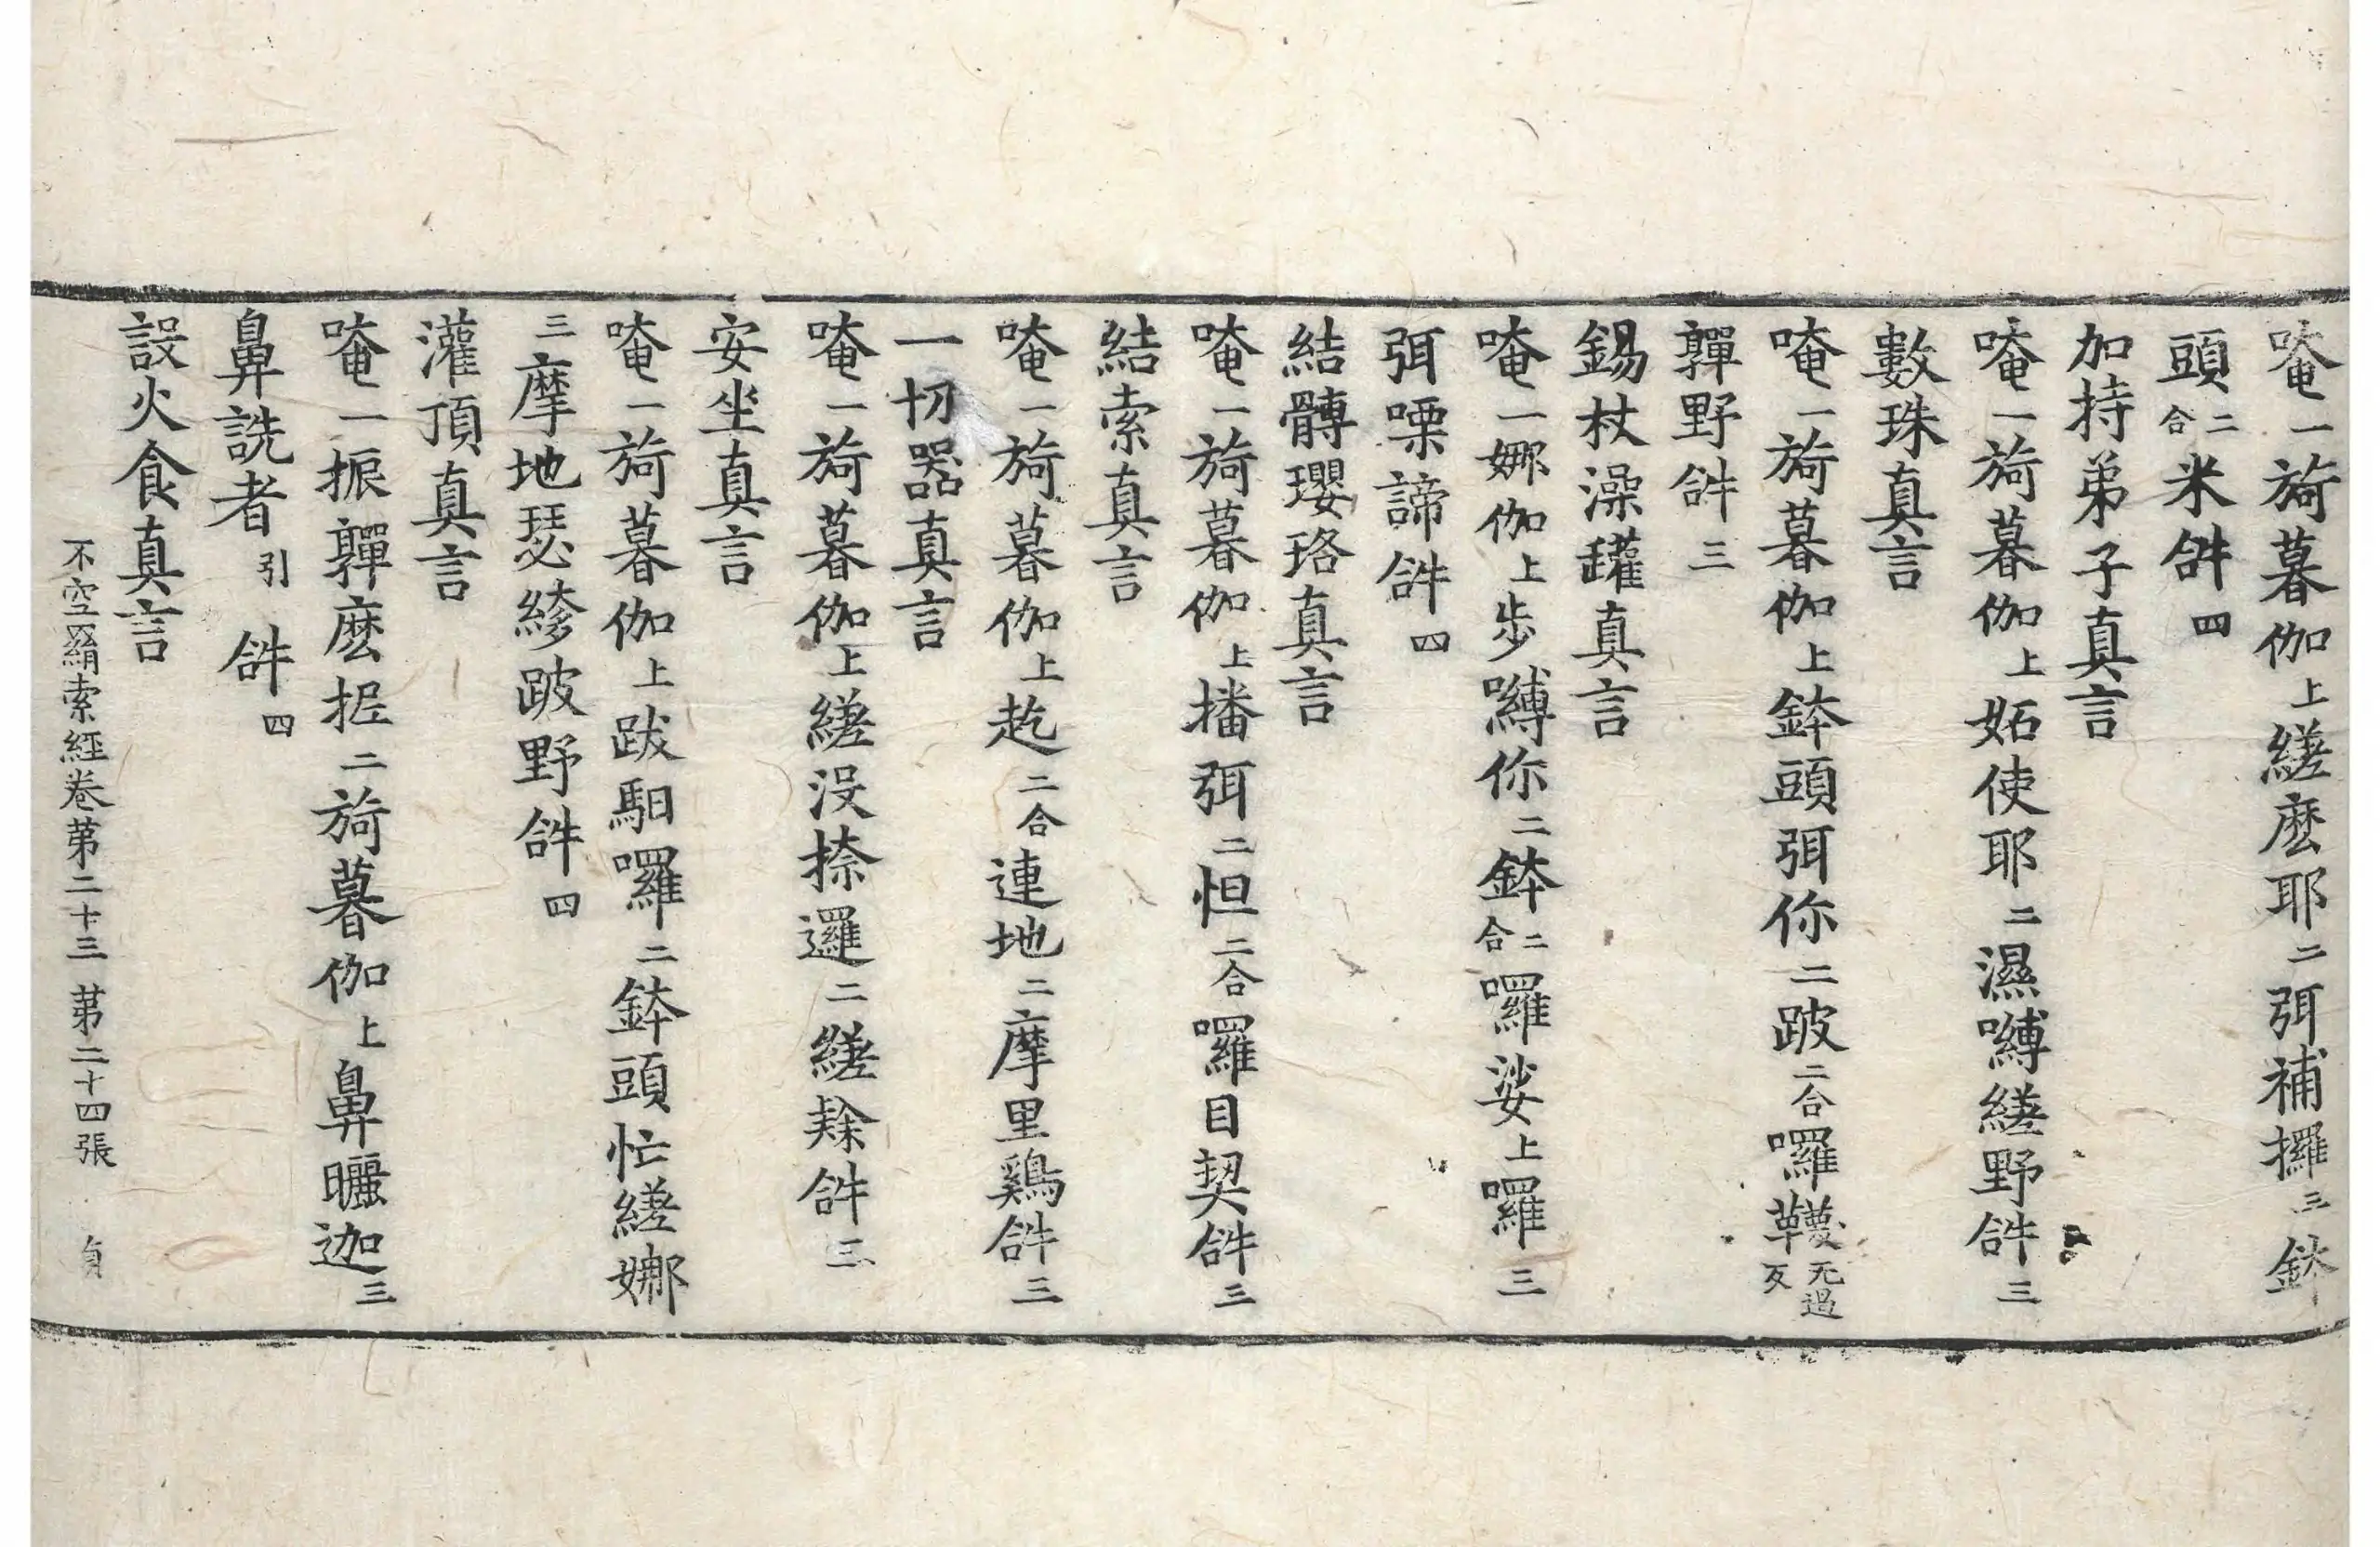 唵一旖暮伽上縒麽耶二弭補攞三鉢
頭二合米𤙖四
加持弟子真言
唵一旖暮伽上妬使耶二濕嚩縒野𤙖三
數珠真言
唵一旖暮伽上鉢頭弭你二跛二合囉韈无遏反
亸野𤙖三
錫杖澡罐真言
唵一娜伽上步嚩你二鉢二合囉娑上囉三
弭㗚諦𤙖四
結髆瓔珞真言
唵一旖暮伽上播弭二怛二合囉目契𤙖三
結索真言
唵一旖暮伽上訖二合連地二摩里鷄𤙖三
一切器真言
唵一旖暮伽上縒沒捺邏二縒䅘𤙖三
安坐真言
唵一旖暮伽上跋馹囉二鉢頭忙縒娜
三摩地瑟絺跛野𤙖四
灌頂真言
唵一振亸麽抳二旖暮伽上鼻曬迦三
鼻詵者引𤙖四
設火食真言
不空羂索經卷第二十三 第二十四張 貞